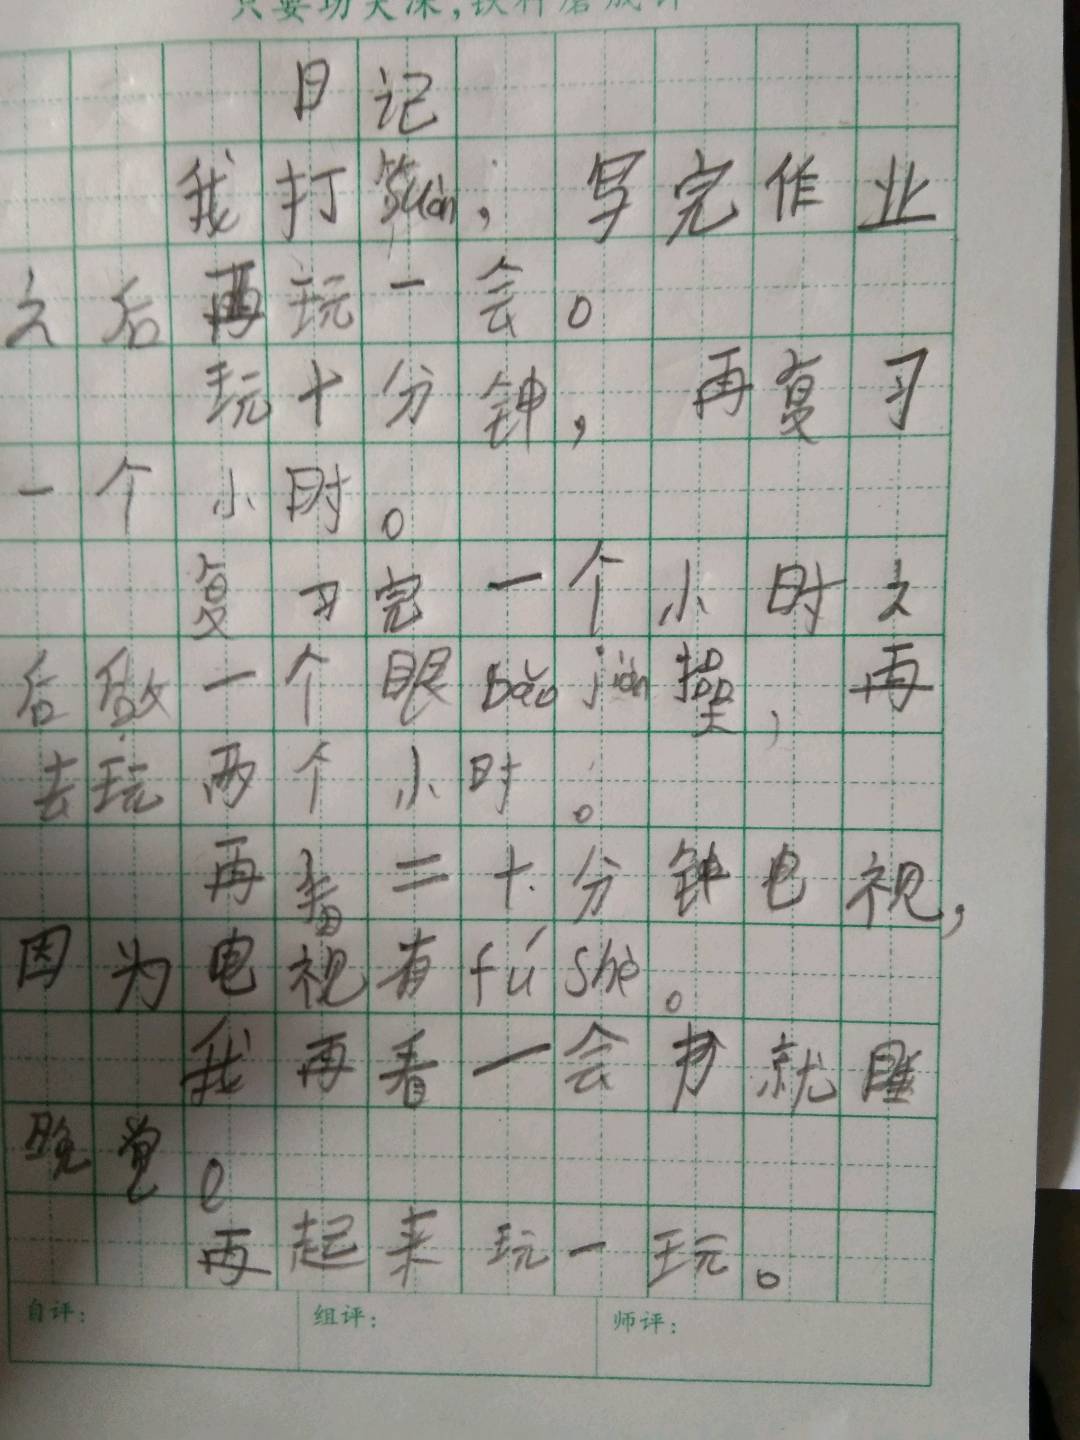 只要功夫深,铁杵磨成针
日记
我打算suàn,写完作业
之后再玩一会。
玩十分钟,再复习
一个小时。
复习完一个小时之
后做一个眼bǎo jiàn操,再
去玩两个小时。
再看二十分钟电视,
因为电视有fú shè。
我再看一会书就睡
晚觉。
再起来玩一玩。
自评: 组评: 师评: